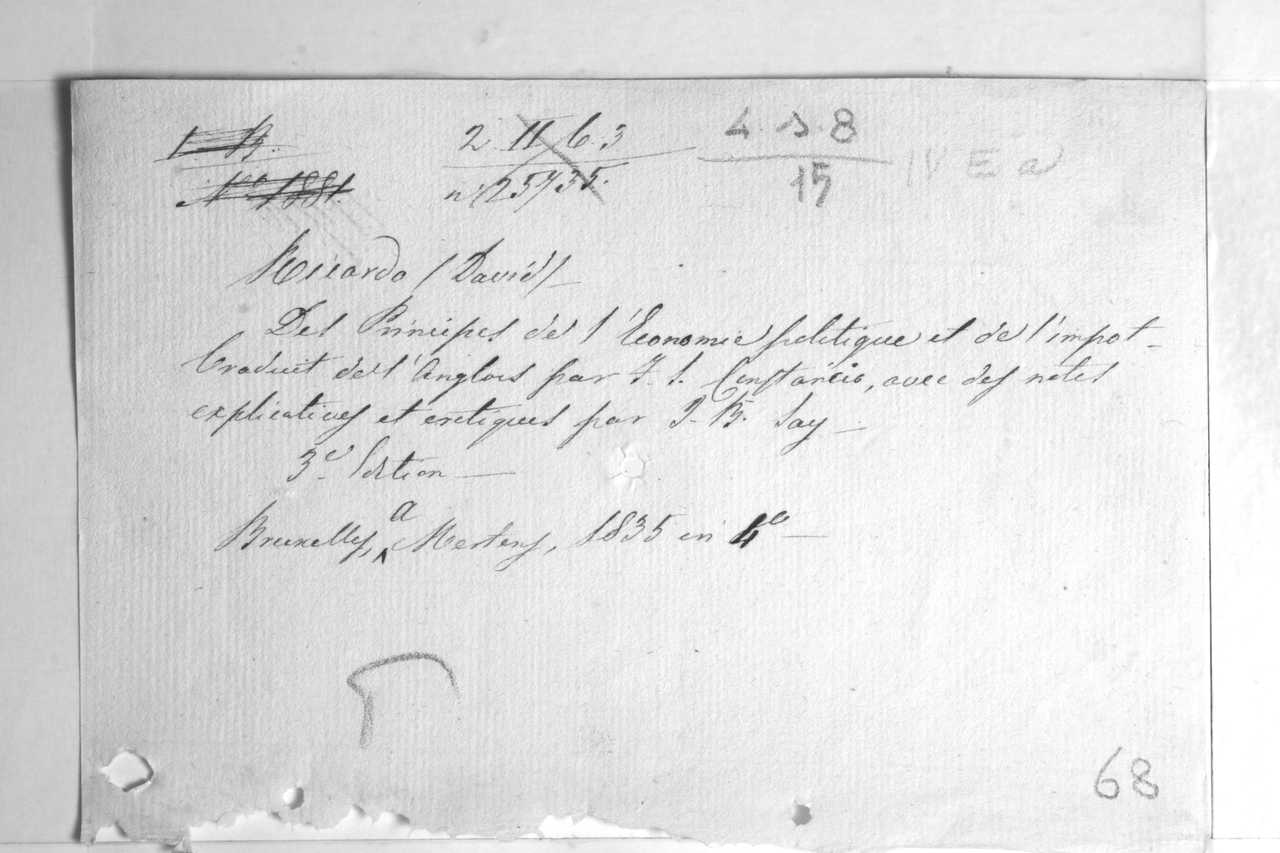 1 B.
N° 1881.
2. 11. 6. 3
n. (25) 35.
4. s. 8
15
IV E a
Ricardo (David) -
Des Principes de l'Économie politique et de l'impot -
traduit de l'Anglois par F. S. Constancio, avec des notes
explicatives et critiques par J. B. Say -
3e Edition -
Bruxelles, a Mertens, 1835 in 4o -
68